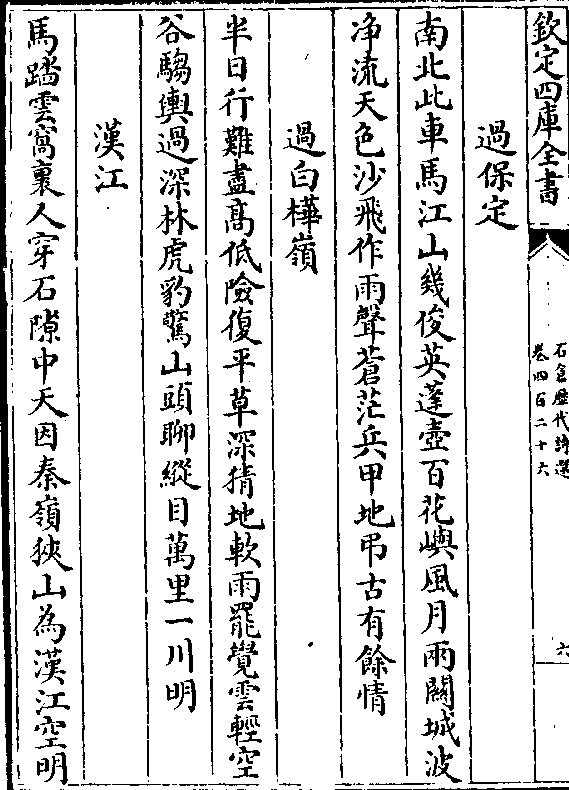 欽定四庫全書
石倉歷代詩選
卷四百二十六
六
過保定
南北此車馬江山幾俊英蓬壺百花嶼風月兩關城波
净流天色沙飛作雨聲蒼茫兵甲地弔古有餘情
過白樺嶺
半日行難盡髙低險復平草深猜地軟雨罷覺雲輕空
谷騶輿過深林虎豹驚山頭聊縱目萬里一川明
漢江
馬踏雲窩裏人穿石隙中天因秦嶺狹山為漢江空明